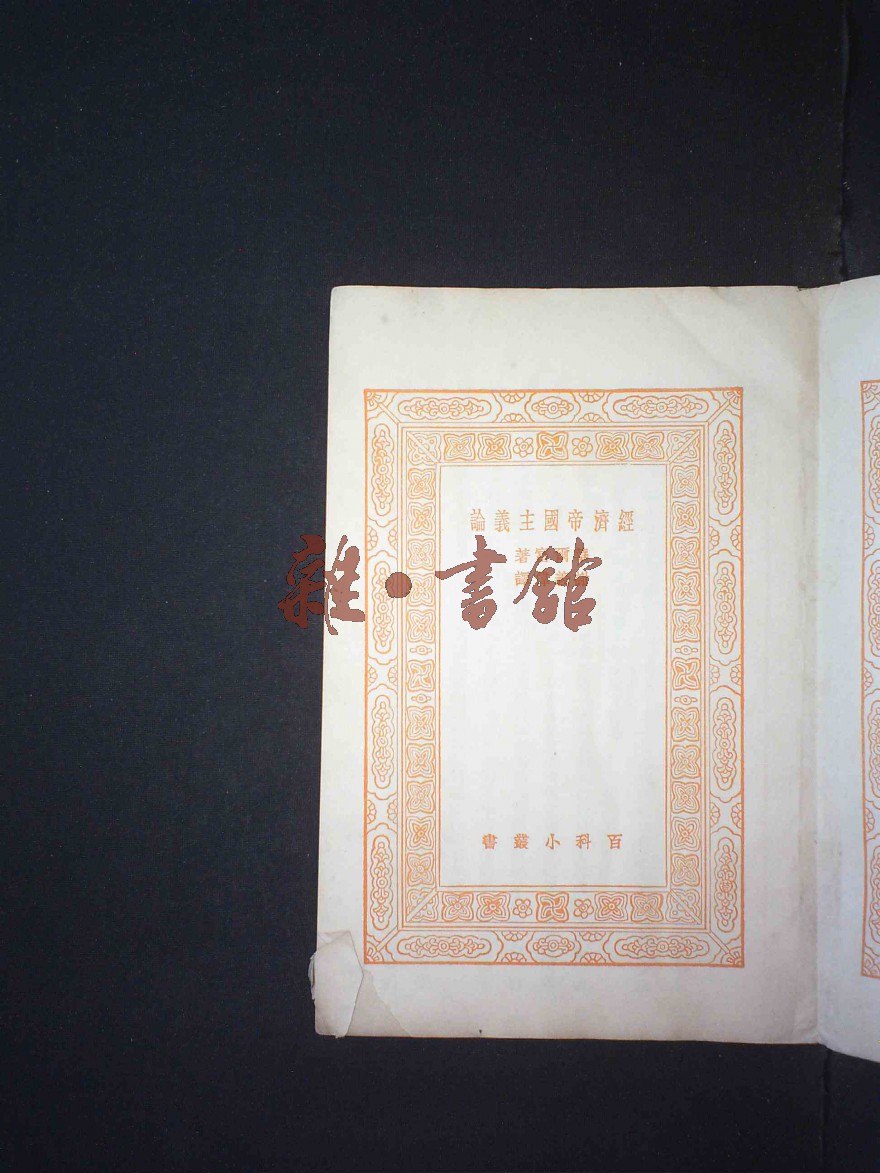 經濟帝國主義論
著
譯
雜·書館
百科小叢書